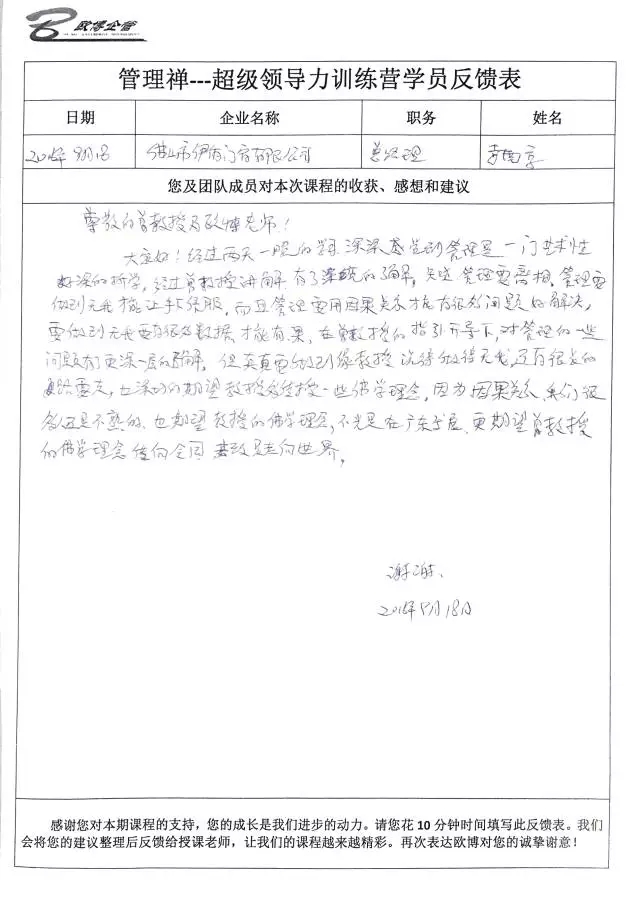 欧博企管
管理禅---超级领导力训练营学员反馈表
日期 企业名称 职务 姓名
2016年9月18 佛山市伊百门窗有限公司 总经理
您及团队成员对本次课程的收获、感想和建议
尊敬的曾教授及欧博老师！
大家好！经过两天一晚的 深深感觉到管理是一门艺术性
好深的哲学，经过曾教授讲解有了深的理解，知道管理要离相，管理要
做到无我才能让手下佩服，而且管理要用因果关系才能有很多问题的解决，
要做到无我要有很多数据，才能有果，在曾教授的指引开导下，对管理的一些
问题有更深一层的理解，但要真正做到像教授说得做得无我，还有很长的
路要走，也深切的期望教授多传授一些佛学理念，因为因果关系我们很
多还是不熟的，也期望教授的佛学理念，不光是在广东发展，更期望曾教授
的佛学理念传向全国甚致是走向世界。
谢谢、
2016年9月18日
感谢您对本期课程的支持，您的成长是我们进步的动力。请您花10分钟时间填写此反馈表。我们
会将您的建议整理后反馈给授课老师，让我们的课程越来越精彩。再次表达欧博对您的诚挚谢意！